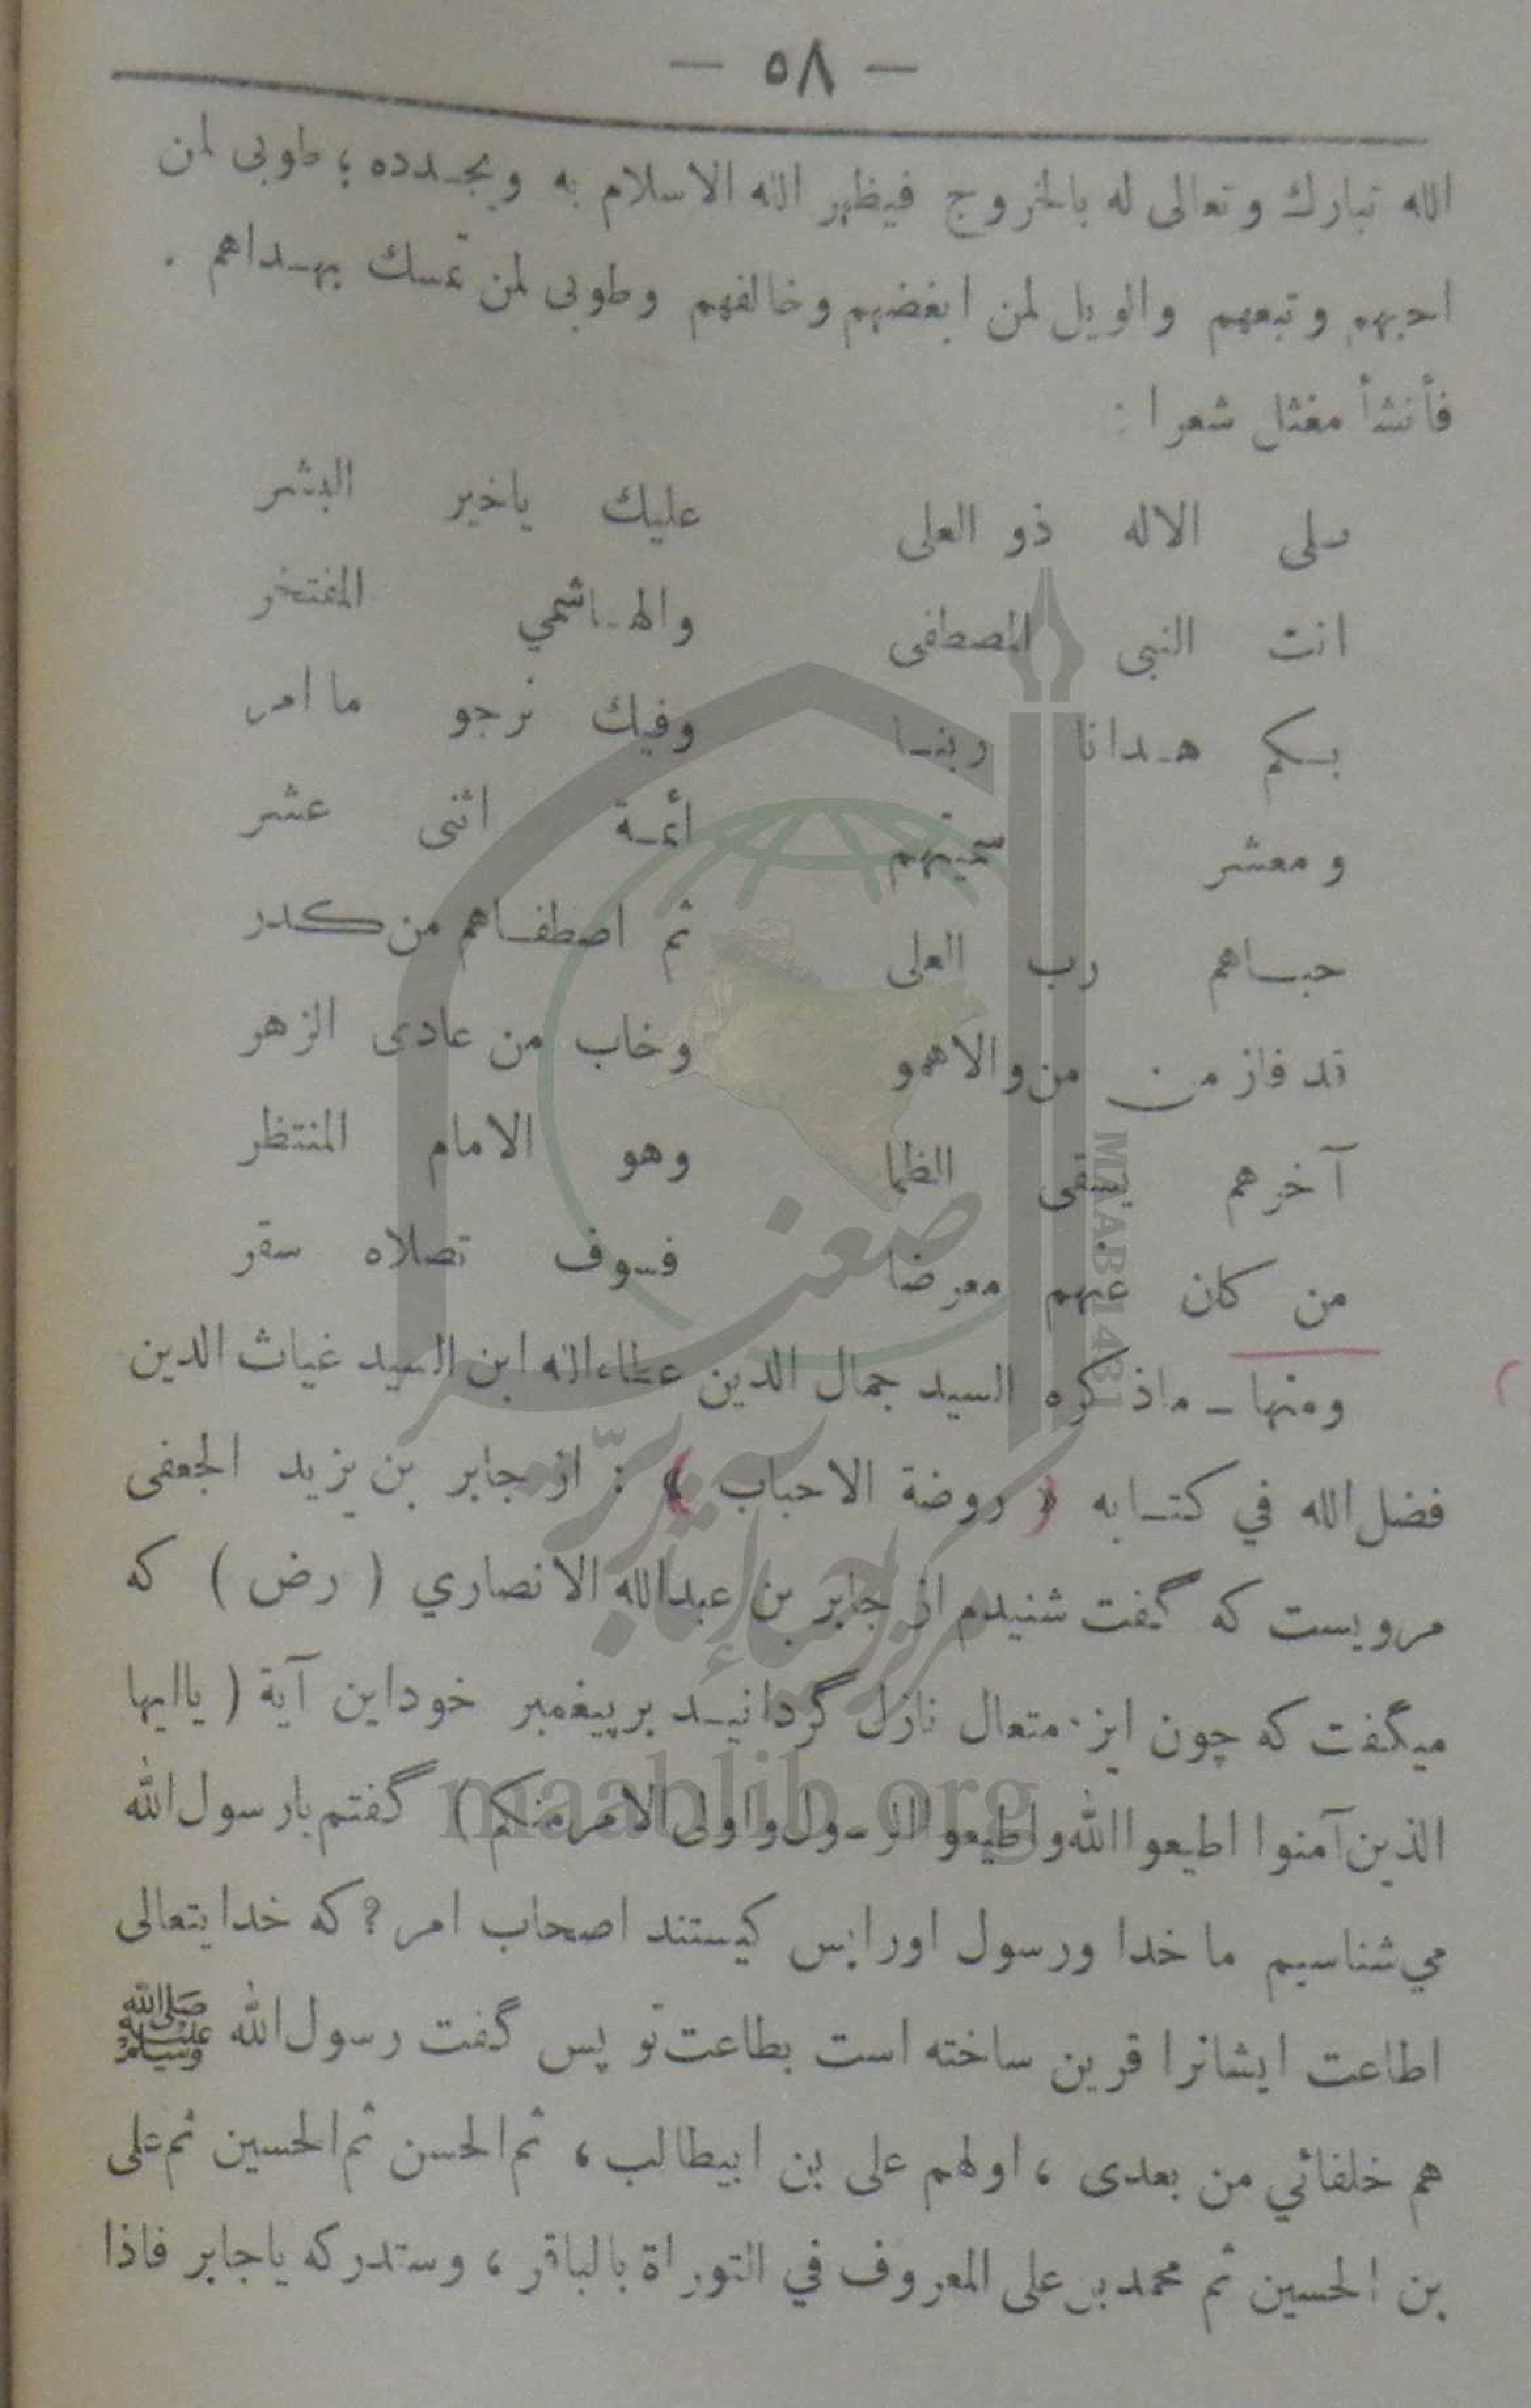 — ٥٨ —
الله تبارك وتعالى له بالخروج فيظهر الله الاسلام به ويجـدده ؛ طوبى لمن
احبهم وتبعهم والويل لمن ابغضهم وخالفهم وطوبى لمن تمسك بهـداهم .
فأنشأ مغثل شعرا :
صلى الاله ذو العلى عليك ياخير البشر
انت النبى المصطفى والهـاشمي المفتخر
بـكم هـدانا ربنـا وفيك نرجو ما امر
ومعشر سميتهم أئمـة اثنى عشر
حبـاهم رب العلى ثم اصطفـاهم من كدر
قد فاز من والاهمو وخاب من عادى الزهر
آخرهم يسقى الظما وهو الامام المنتظر
من كان عنهم معرضا فسوف تصلاه سقر
ومنها ـ ماذكره السيد جمال الدين عطاءالله ابن السيد غياث الدين
فضل الله في كتـابه « روضة الاحباب » : از جابر بن يزيد الجعفى
مرويست كه گفت شنيدم از جابر بن عبدالله الانصاري ( رض ) كه
ميگفت كه چون ايزد متعال نازل گردانيـد بر پيغمبر خود اين آية ( ياايها
الذين آمنوا اطيعوا الله واطيعوا الرسول واولى الامر منكم ) گفتم يارسول الله
مي شناسيم ما خدا ورسول اورا پس كيستند اصحاب امر ؟ كه خدايتعالى
اطاعت ايشانرا قرين ساخته است بطاعت تو پس گفت رسول الله ﷺ
هم خلفائي من بعدى ، اولهم على بن ابيطالب ، ثم الحسن ثم الحسين ثم على
بن الحسين ثم محمد بن على المعروف في التوراة بالباقر ، وستدركه ياجابر فاذا
MAAB 1431
maablib.org